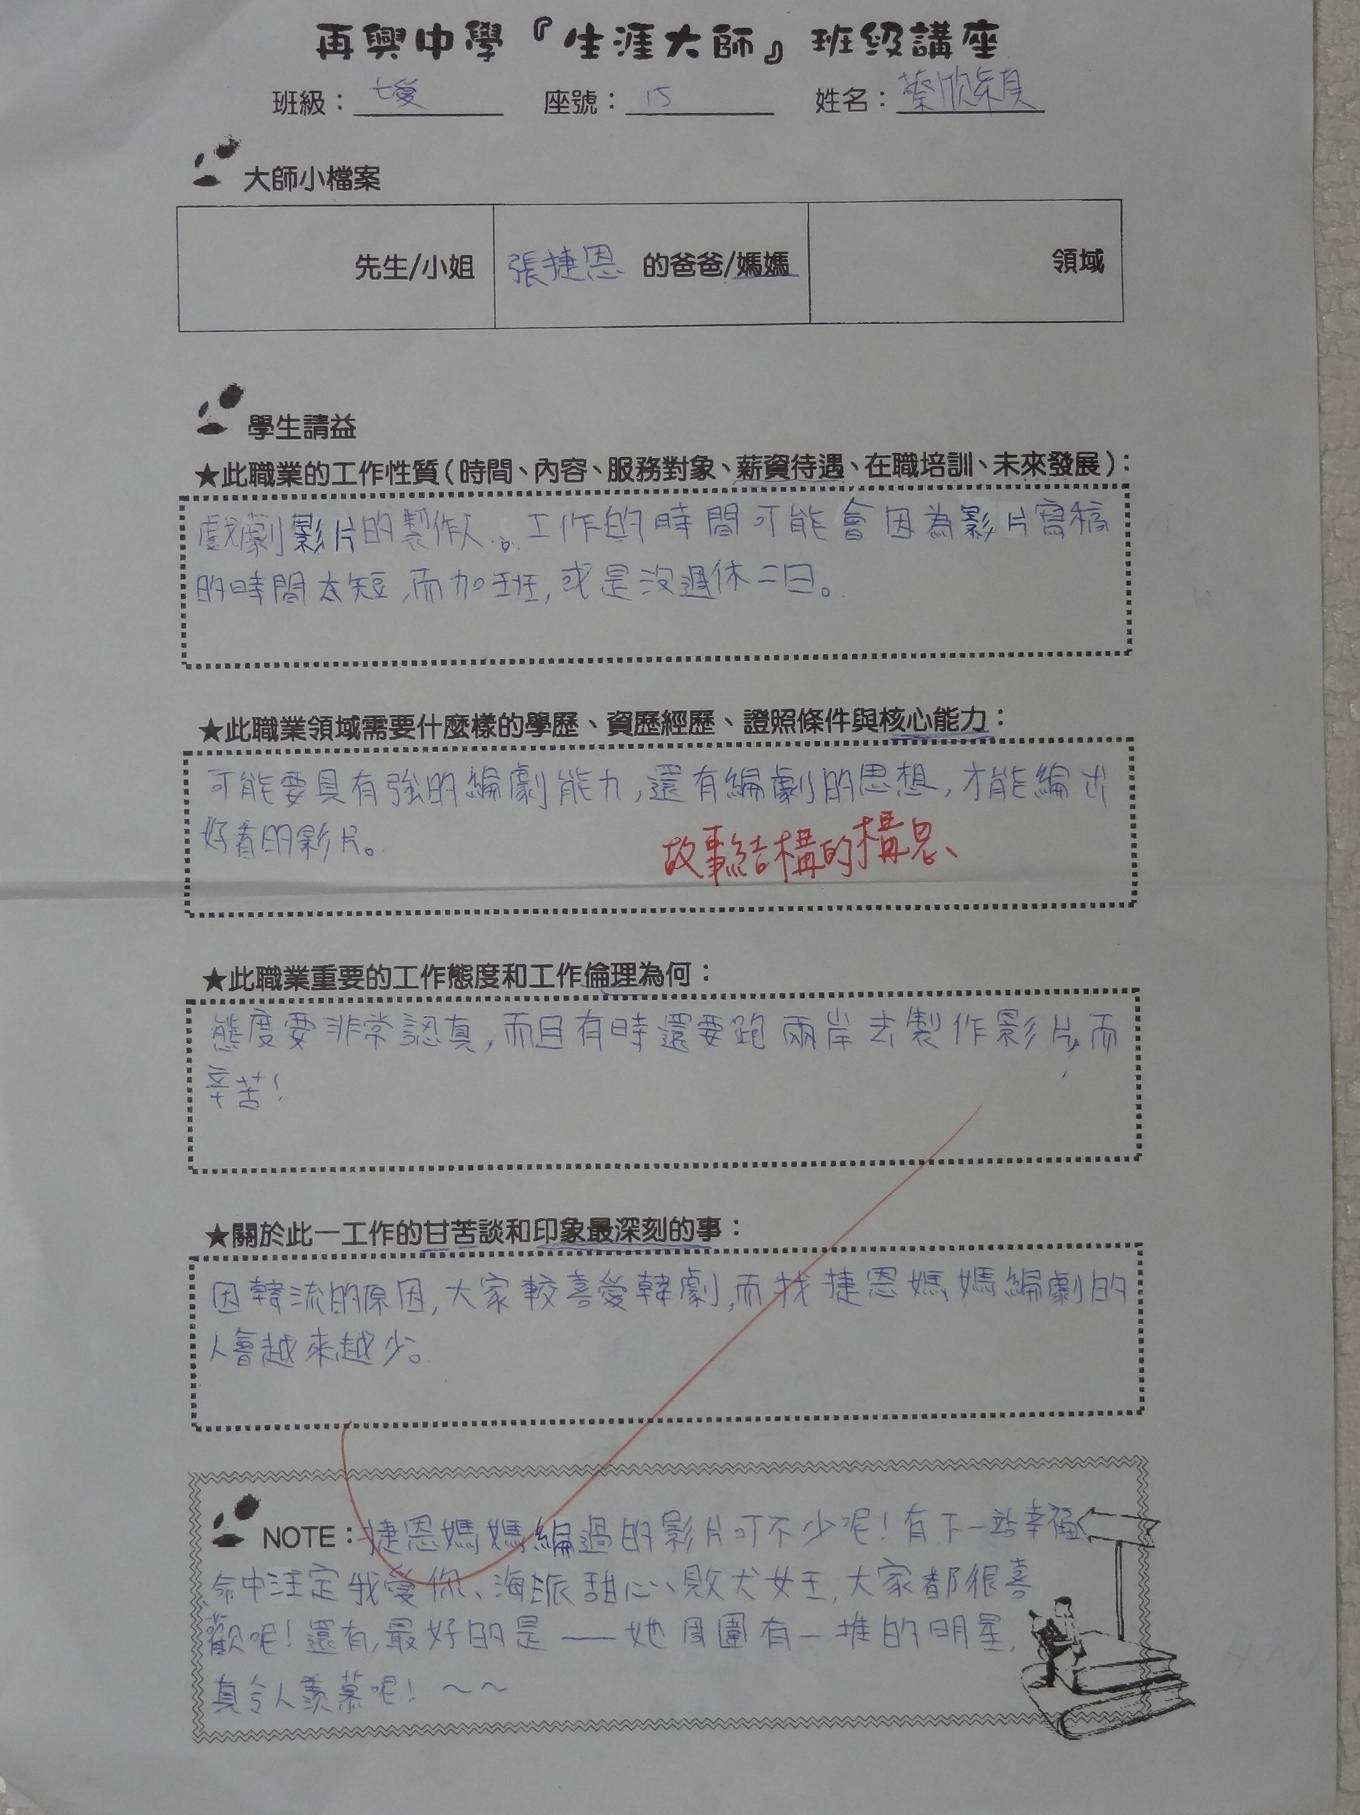 再興中學『生涯大師』班級講座
班級：七愛 座號：15 姓名：蔡欣穎
大師小檔案
先生/小姐 張捷恩 的爸爸/媽媽 領域
學生請益
★此職業的工作性質（時間、內容、服務對象、薪資待遇、在職培訓、未來發展）：
戲劇影片的製作人。工作的時間可能會因為影片寫稿
的時間太短,而加班,或是沒週休二日。
★此職業領域需要什麼樣的學歷、資歷經歷、證照條件與核心能力：
可能要具有強的編劇能力,還有編劇的思想,才能編出
好看的影片。
故事結構的構思、
★此職業重要的工作態度和工作倫理為何：
態度要非常認真,而且有時還要跑兩岸去製作影片,而
辛苦!
★關於此一工作的甘苦談和印象最深刻的事：
因韓流的原因,大家較喜愛韓劇,而找捷恩媽媽編劇的
人會越來越少。
NOTE：捷恩媽媽編過的影片可不少呢!有下一站幸福
命中注定我愛你、海派甜心、敗犬女王,大家都很喜
歡呢!還有,最好的是——她周圍有一堆的明星,
真令人羨慕呢!~~